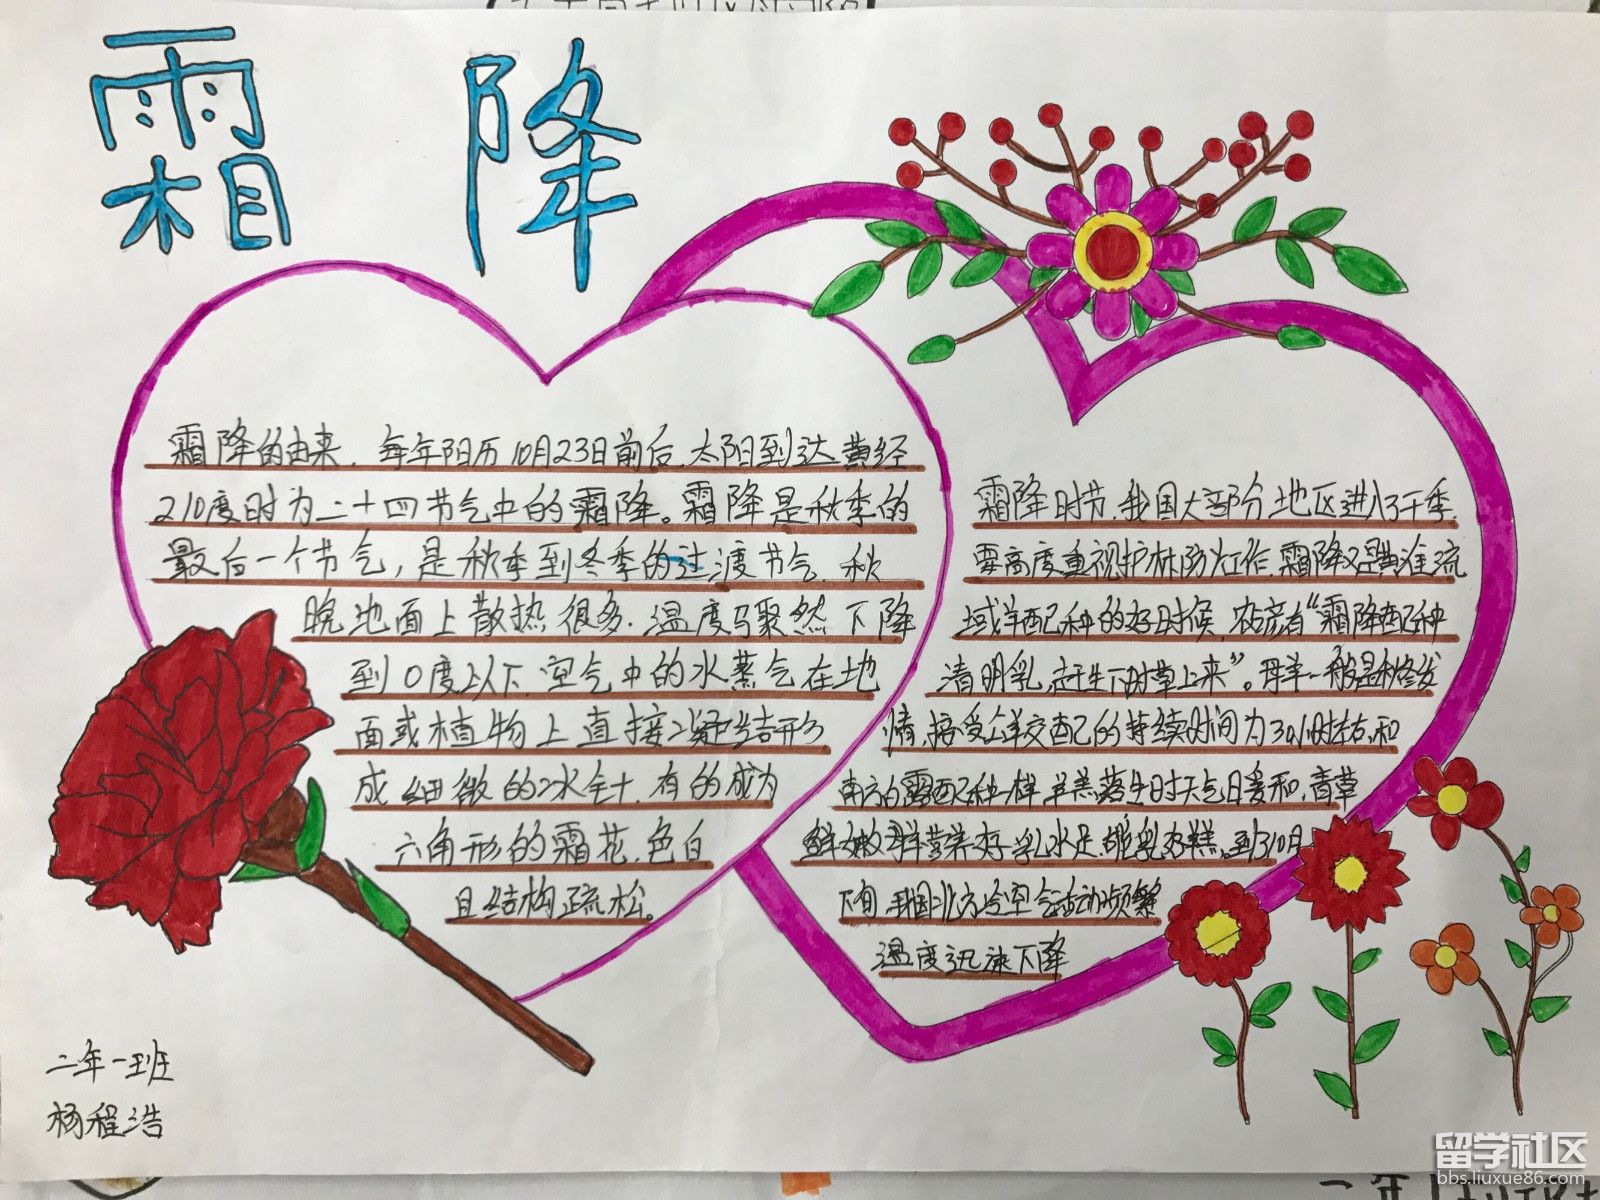 霜降
霜降的由来. 每年阳历10月23日前后.太阳到达黄经
210度时为二十四节气中的霜降。霜降是秋季的
最后一个节气,是秋季到冬季的过渡节气.秋
晚地面上散热很多.温度骤然下降
到0度以下.空气中的水蒸气在地
面或植物上直接凝结形
成细微的冰针.有的成为
六角形的霜花.色白
且结构疏松。
霜降时节.我国大部分地区进入了干季.
要高度重视护林防火工作.霜降又是黄淮流
域羊配种的好时候.农彦有“霜降配种
清明乳,赶生下时草上来”。母羊一般是秋冬发
情.接受公羊交配的持续时间为30小时左右.和
南方白露配种一样.羊羔落生时天气日暖和.青草
鲜嫩.母羊营养好.乳水足.哺乳好羔.到了10月
下旬.我国北方冷空气活动频繁
温度迅速下降
二年一班
杨程浩
留学社区
bbs.liuxue86.com